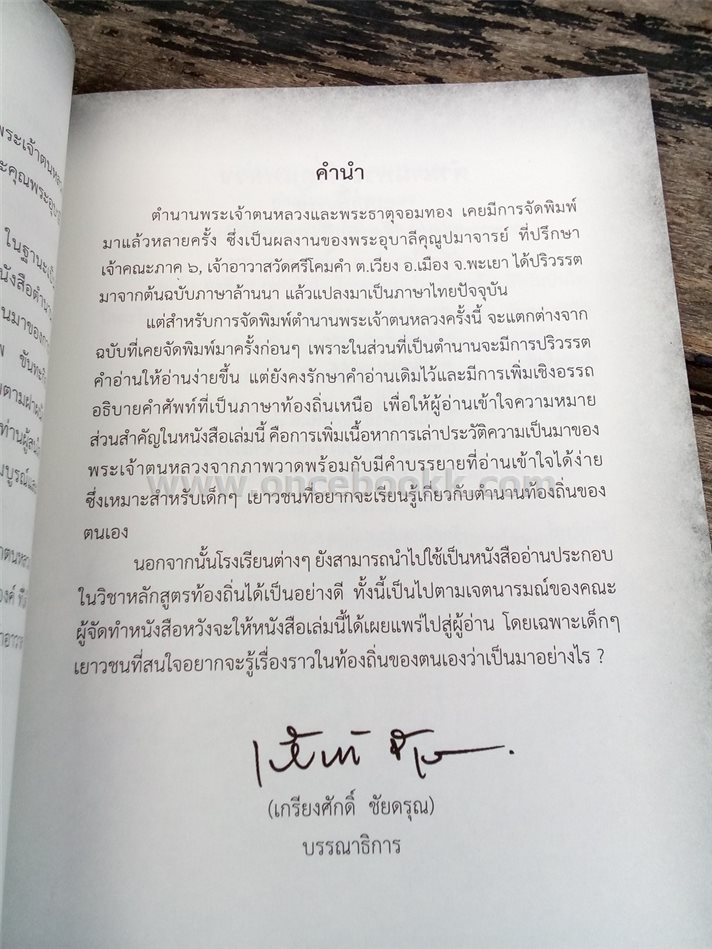 พระเจ้าตนหลว
ในฐานะเป็น
คำนำ
ตำนานพระเจ้าตนหลวงและพระธาตุจอมทอง เคยมีการจัดพิมพ์
มาแล้วหลายครั้ง ซึ่งเป็นผลงานของพระอุบาลีคุณูปมาจารย์ ที่ปรึกษา
เจ้าคณะภาค ๖, เจ้าอาวาสวัดศรีโคมคำ ต.เวียง อ.เมือง จ.พะเยา ได้ปริวรรต
มาจากต้นฉบับภาษาล้านนา แล้วแปลงมาเป็นภาษาไทยปัจจุบัน
แต่สำหรับการจัดพิมพ์ตำนานพระเจ้าตนหลวงครั้งนี้ จะแตกต่างจาก
ฉบับที่เคยจัดพิมพ์มาครั้งก่อนๆ เพราะในส่วนที่เป็นตำนานจะมีการปริวรรต
คำอ่านให้อ่านง่ายขึ้น แต่ยังคงรักษาคำอ่านเดิมไว้และมีการเพิ่มเชิงอรรถ
อธิบายคำศัพท์ที่เป็นภาษาท้องถิ่นเหนือ เพื่อให้ผู้อ่านเข้าใจความหมาย
ส่วนสำคัญในหนังสือเล่มนี้ คือการเพิ่มเนื้อหาการเล่าประวัติความเป็นมาของ
พระเจ้าตนหลวงจากภาพวาดพร้อมกับมีคำบรรยายที่อ่านเข้าใจได้ง่าย
www.oncebookk.com
ซึ่งเหมาะสำหรับเด็กๆ เยาวชนที่อยากจะเรียนรู้เกี่ยวกับตำนานท้องถิ่นของ
ตนเอง
นอกจากนั้นโรงเรียนต่างๆ ยังสามารถนำไปใช้เป็นหนังสืออ่านประกอบ
ในวิชาหลักสูตรท้องถิ่นได้เป็นอย่างดี ทั้งนี้เป็นไปตามเจตนารมณ์ของคณะ
ผู้จัดทำหนังสือหวังจะให้หนังสือเล่มนี้ได้เผยแพร่ไปสู่ผู้อ่าน โดยเฉพาะเด็กๆ
เยาวชนที่สนใจอยากจะรู้เรื่องราวในท้องถิ่นของตนเองว่าเป็นมาอย่างไร ?
(เกรียงศักดิ์ ชัยดรุณ)
บรรณาธิการ